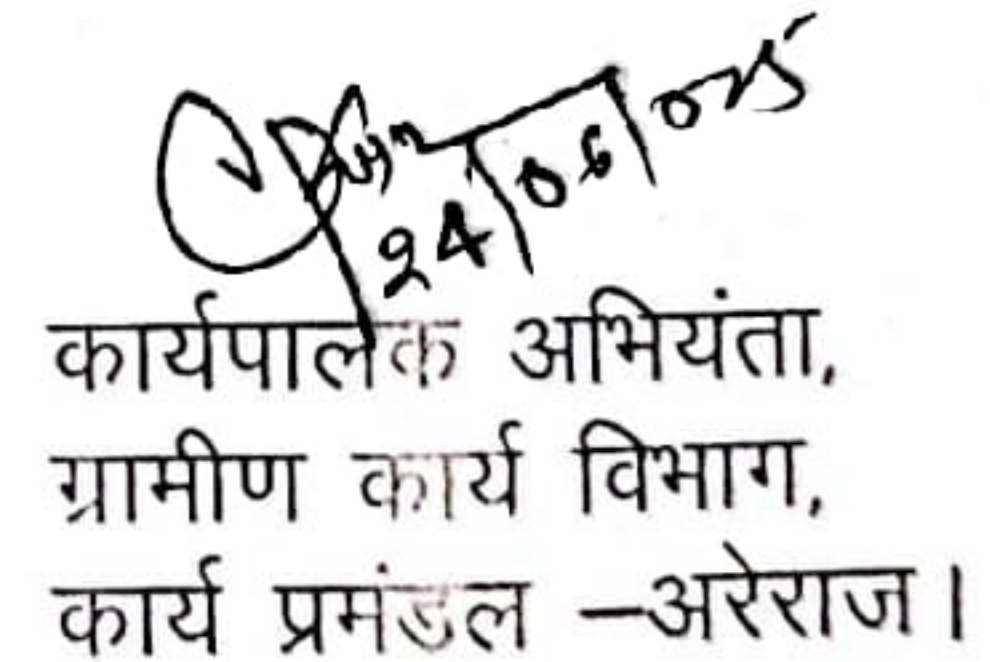 24/06/025
कार्यपालक अभियंता,
ग्रामीण कार्य विभाग,
कार्य प्रमंडल –अरेराज।